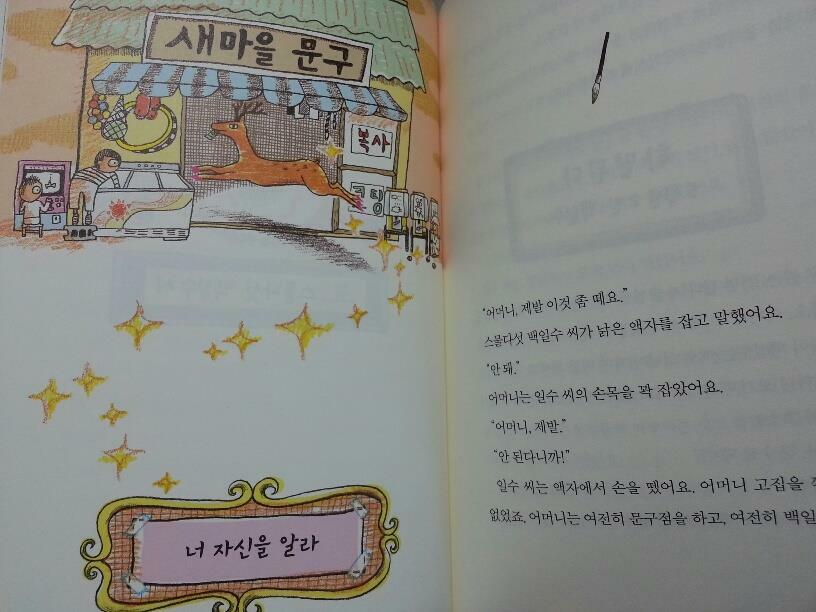 새마을 문구
복사
코팅
너 자신을 알라
“어머니, 제발 이것 좀 떼요.”
스물다섯 백일수 씨가 낡은 액자를 잡고 말했어요.
“안 돼.”
어머니는 일수 씨의 손목을 꽉 잡았어요.
“어머니, 제발.”
“안 된다니까!”
일수 씨는 액자에서 손을 뗐어요. 어머니 고집을
없었죠. 어머니는 여전히 문구점을 하고, 여전히 백일